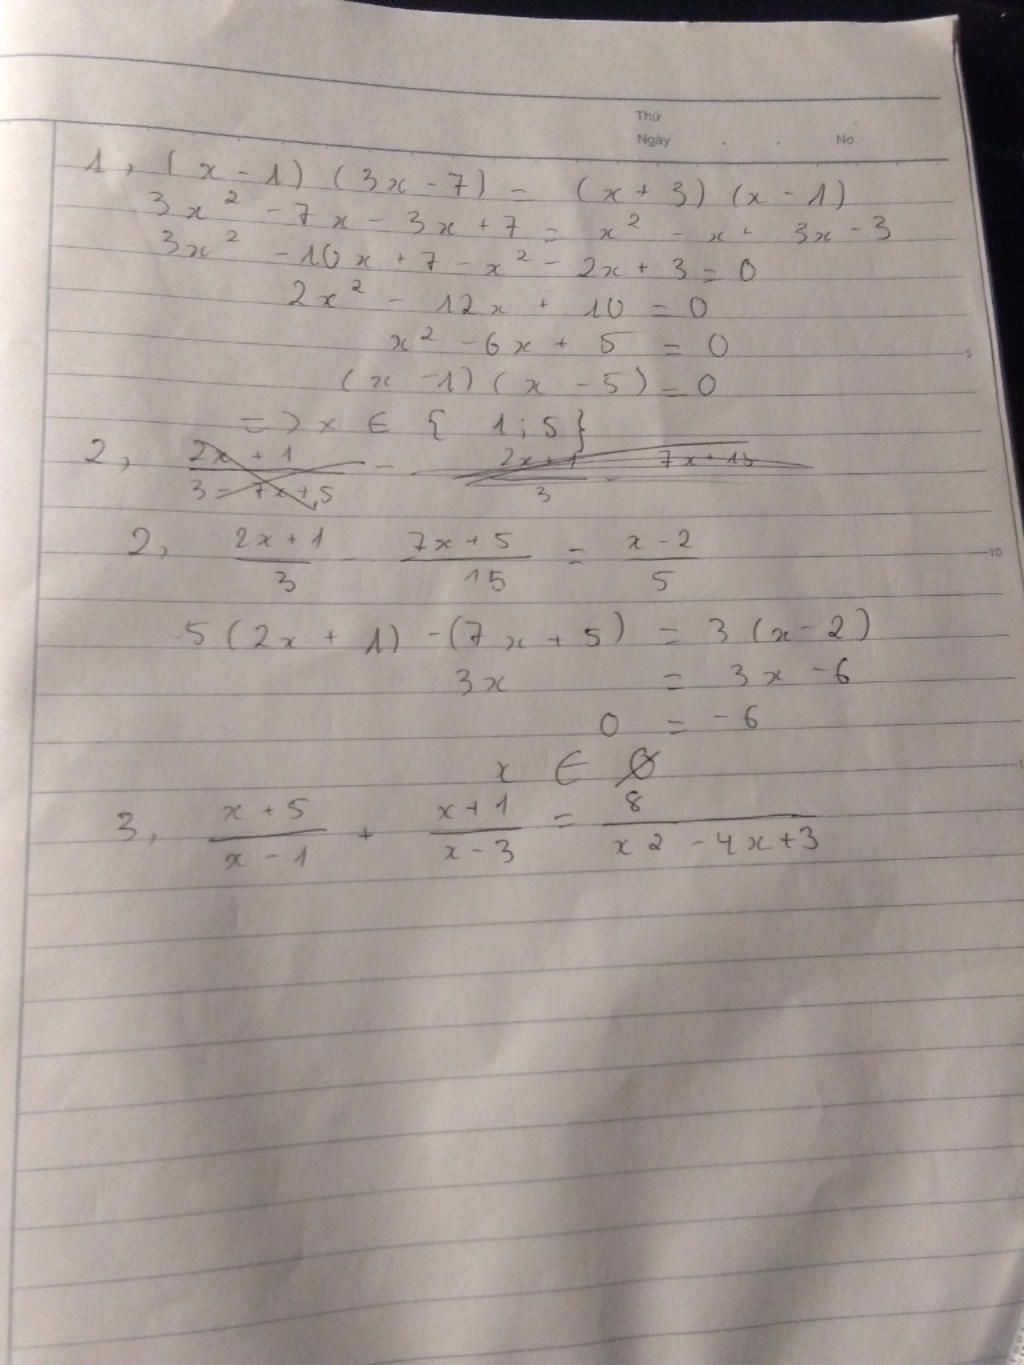 Thứ
Ngày . . No.
1, (x - 1) (3x - 7) = (x + 3) (x - 1)
3x² - 7x - 3x + 7 = x² - x + 3x - 3
3x² - 10x + 7 - x² - 2x + 3 = 0
2x² - 12x + 10 = 0
x² - 6x + 5 = 0
5
(x - 1) (x - 5) = 0
=> x ∈ { 1; 5 }
2, (2x + 1)/(3 = 7x + 5) - (2x + 1)/3 - 7x + 15
2, (2x + 1)/3 - (7x + 5)/15 = (x - 2)/5
10
5 (2x + 1) - (7x + 5) = 3 (x - 2)
3x = 3x - 6
0 = -6
x ∈ ∅
3, (x + 5)/(x - 1) + (x + 1)/(x - 3) = 8/(x2 - 4x + 3)